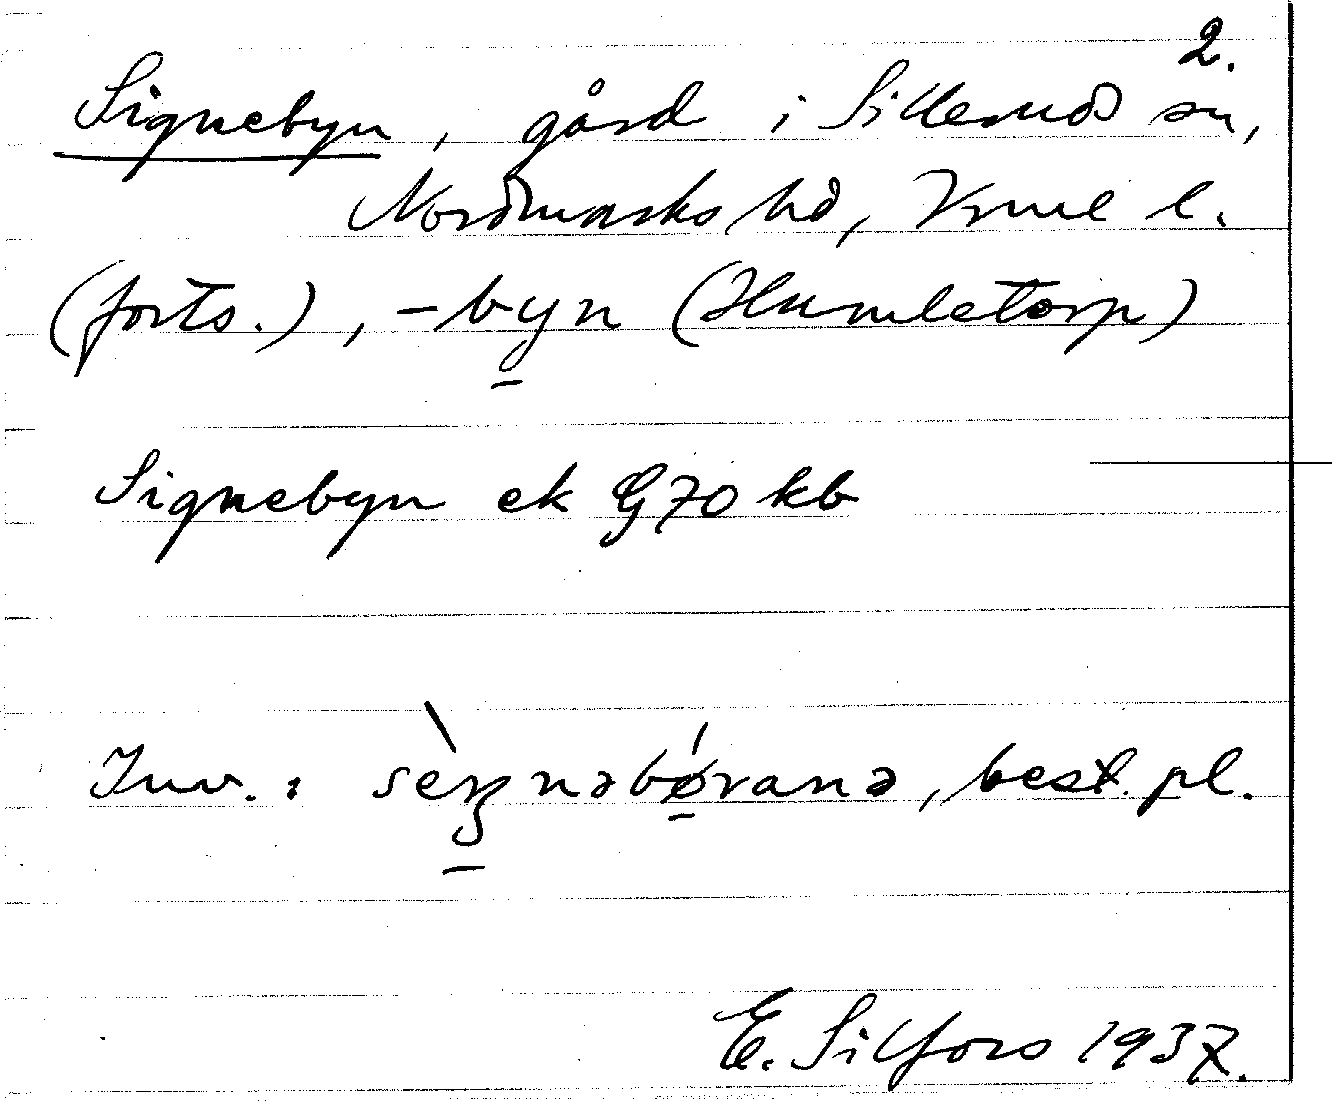 2.
Signebyn, gård i Sillerud sn,
Nordmarks hd, Vrml l.
(forts.), -byn (Humletorp)
Signebyn ek G70 kb
Inv.: sèŋnəbǿranə, best. pl.
E. Silfors 1937.